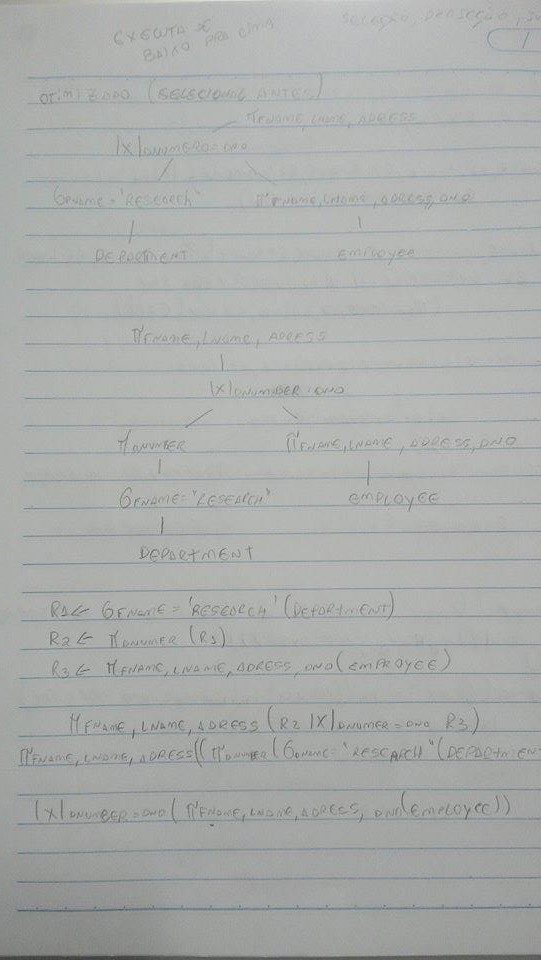 EXECUTA DE
BAIXO PRA CIMA
SELEÇÃO, PROJEÇÃO,
1
OTIMIZADO (SELECIONAR ANTES)
π FNAME, LNAME, ADRESS
|X| DNUMERO = DNO
σ FNAME = "RESEARCH" π FNAME, LNAME, ADRESS, DNO
DEPARTMENT EMPLOYEE
π FNAME, LNAME, ADRESS
|X| DNUMBER = DNO
π DNUMBER π FNAME, LNAME, ADRESS, DNO
σ FNAME = "RESEARCH" EMPLOYEE
DEPARTMENT
R1 ← σ FNAME = 'RESEARCH' (DEPARTMENT)
R2 ← π DNUMER (R1)
R3 ← π FNAME, LNAME, ADRESS, DNO (EMPLOYEE)
π FNAME, LNAME, ADRESS (R2 |X| DNUMER = DNO R3)
π FNAME, LNAME, ADRESS ((π DNUMBER (σ DNAME = "RESEARCH" (DEPARTMENT
|X| DNUMBER = DNO (π FNAME, LNAME, ADRESS, DNO (EMPLOYEE))